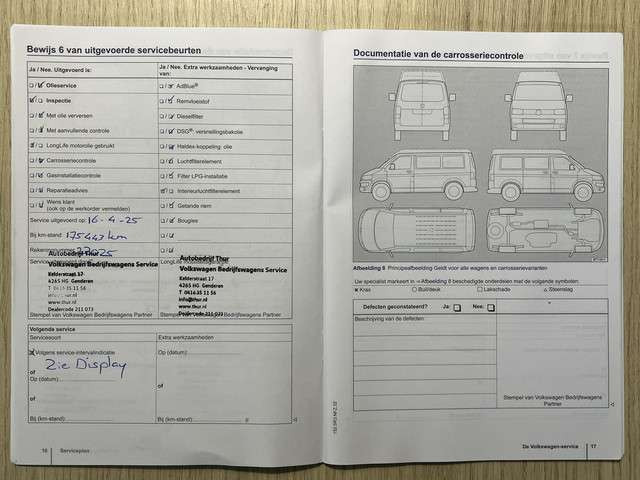 Bewijs 6 van uitgevoerde servicebeurten
Ja / Nee. Uitgevoerd is:
Olieservice
Inspectie
Met olie verversen
Met aanvullende controle
LongLife motorolie gebruikt
Carrosseriecontrole
Gasinstallatiecontrole
Reparatieadvies
Wens klant
(ook op de werkorder vermelden)
Service uitgevoerd op: 16-4-25
Bij km-stand: 175443 km
Ja / Nee. Extra werkzaamheden - Vervanging van:
AdBlue®
Remvloeistof
Dieselfilter
DSG® versnellingsbakolie
Haldex-koppeling olie
Luchtfilterelement
Filter LPG-installatie
Interieurluchtfilterelement
Getande riem
Bougies
Autobedrijf Thur
Volkswagen Bedrijfswagens Service
Kelderstraat 17
4265 HG Genderen
www.thur.nl
Dealercode 211 073
Stempel van Volkswagen Bedrijfswagens Partner
Autobedrijf Thur
Volkswagen Bedrijfswagens Service
Kelderstraat 17
4265 HG Genderen
T 0416 35 11 56
info@thur.nl
www.thur.nl
Dealercode 211 073
Stempel van Volkswagen Bedrijfswagens Partner
Volgende service
Servicesoort
Volgens service-intervalindicatie
Zie Display
of
Op (datum):
of
Bij (km-stand):
Extra werkzaamheden
Op (datum):
of
Bij (km-stand):
16
Serviceplan
Documentatie van de carrosseriecontrole
Afbeelding 8 Principeafbeelding Geldt voor alle wagens en carrosserievarianten
Uw specialist markeert in Afbeelding 8 beschadigde onderdelen met de volgende symbolen:
x Kras
Buil/deuk
Lakschade
△ Steenslag
Defecten geconstateerd? Ja: Nee:
Beschrijving van de defecten:
Stempel van Volkswagen Bedrijfswagens Partner
De Volkswagen-service
17